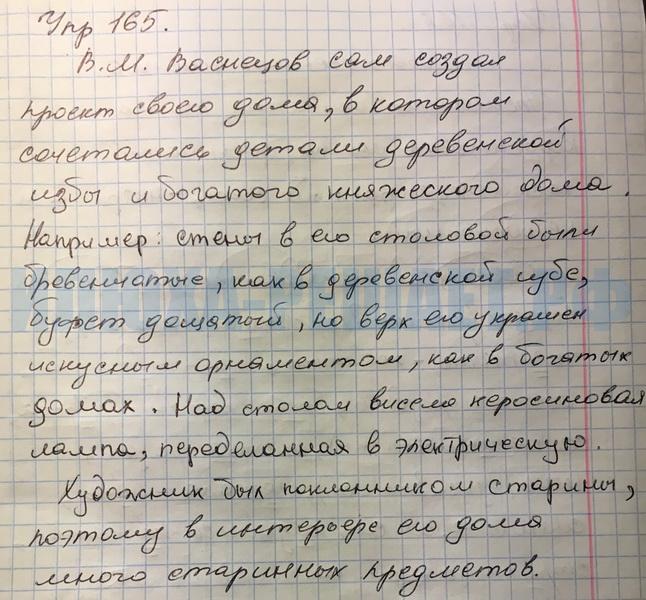 Упр 165.
В.М. Васнецов сам создал
проект своего дома, в котором
сочетались детали деревенской
избы и богатого княжеского дома.
Например: стены в его столовой были
бревенчатые, как в деревенской избе,
буфет дощатый, но верх его украшен
искусным орнаментом, как в богатых
домах. Над столом висела керосиновая
лампа, переделанная в электрическую.
Художник был поклонником старины,
поэтому в интерьере его дома
много старинных предметов.